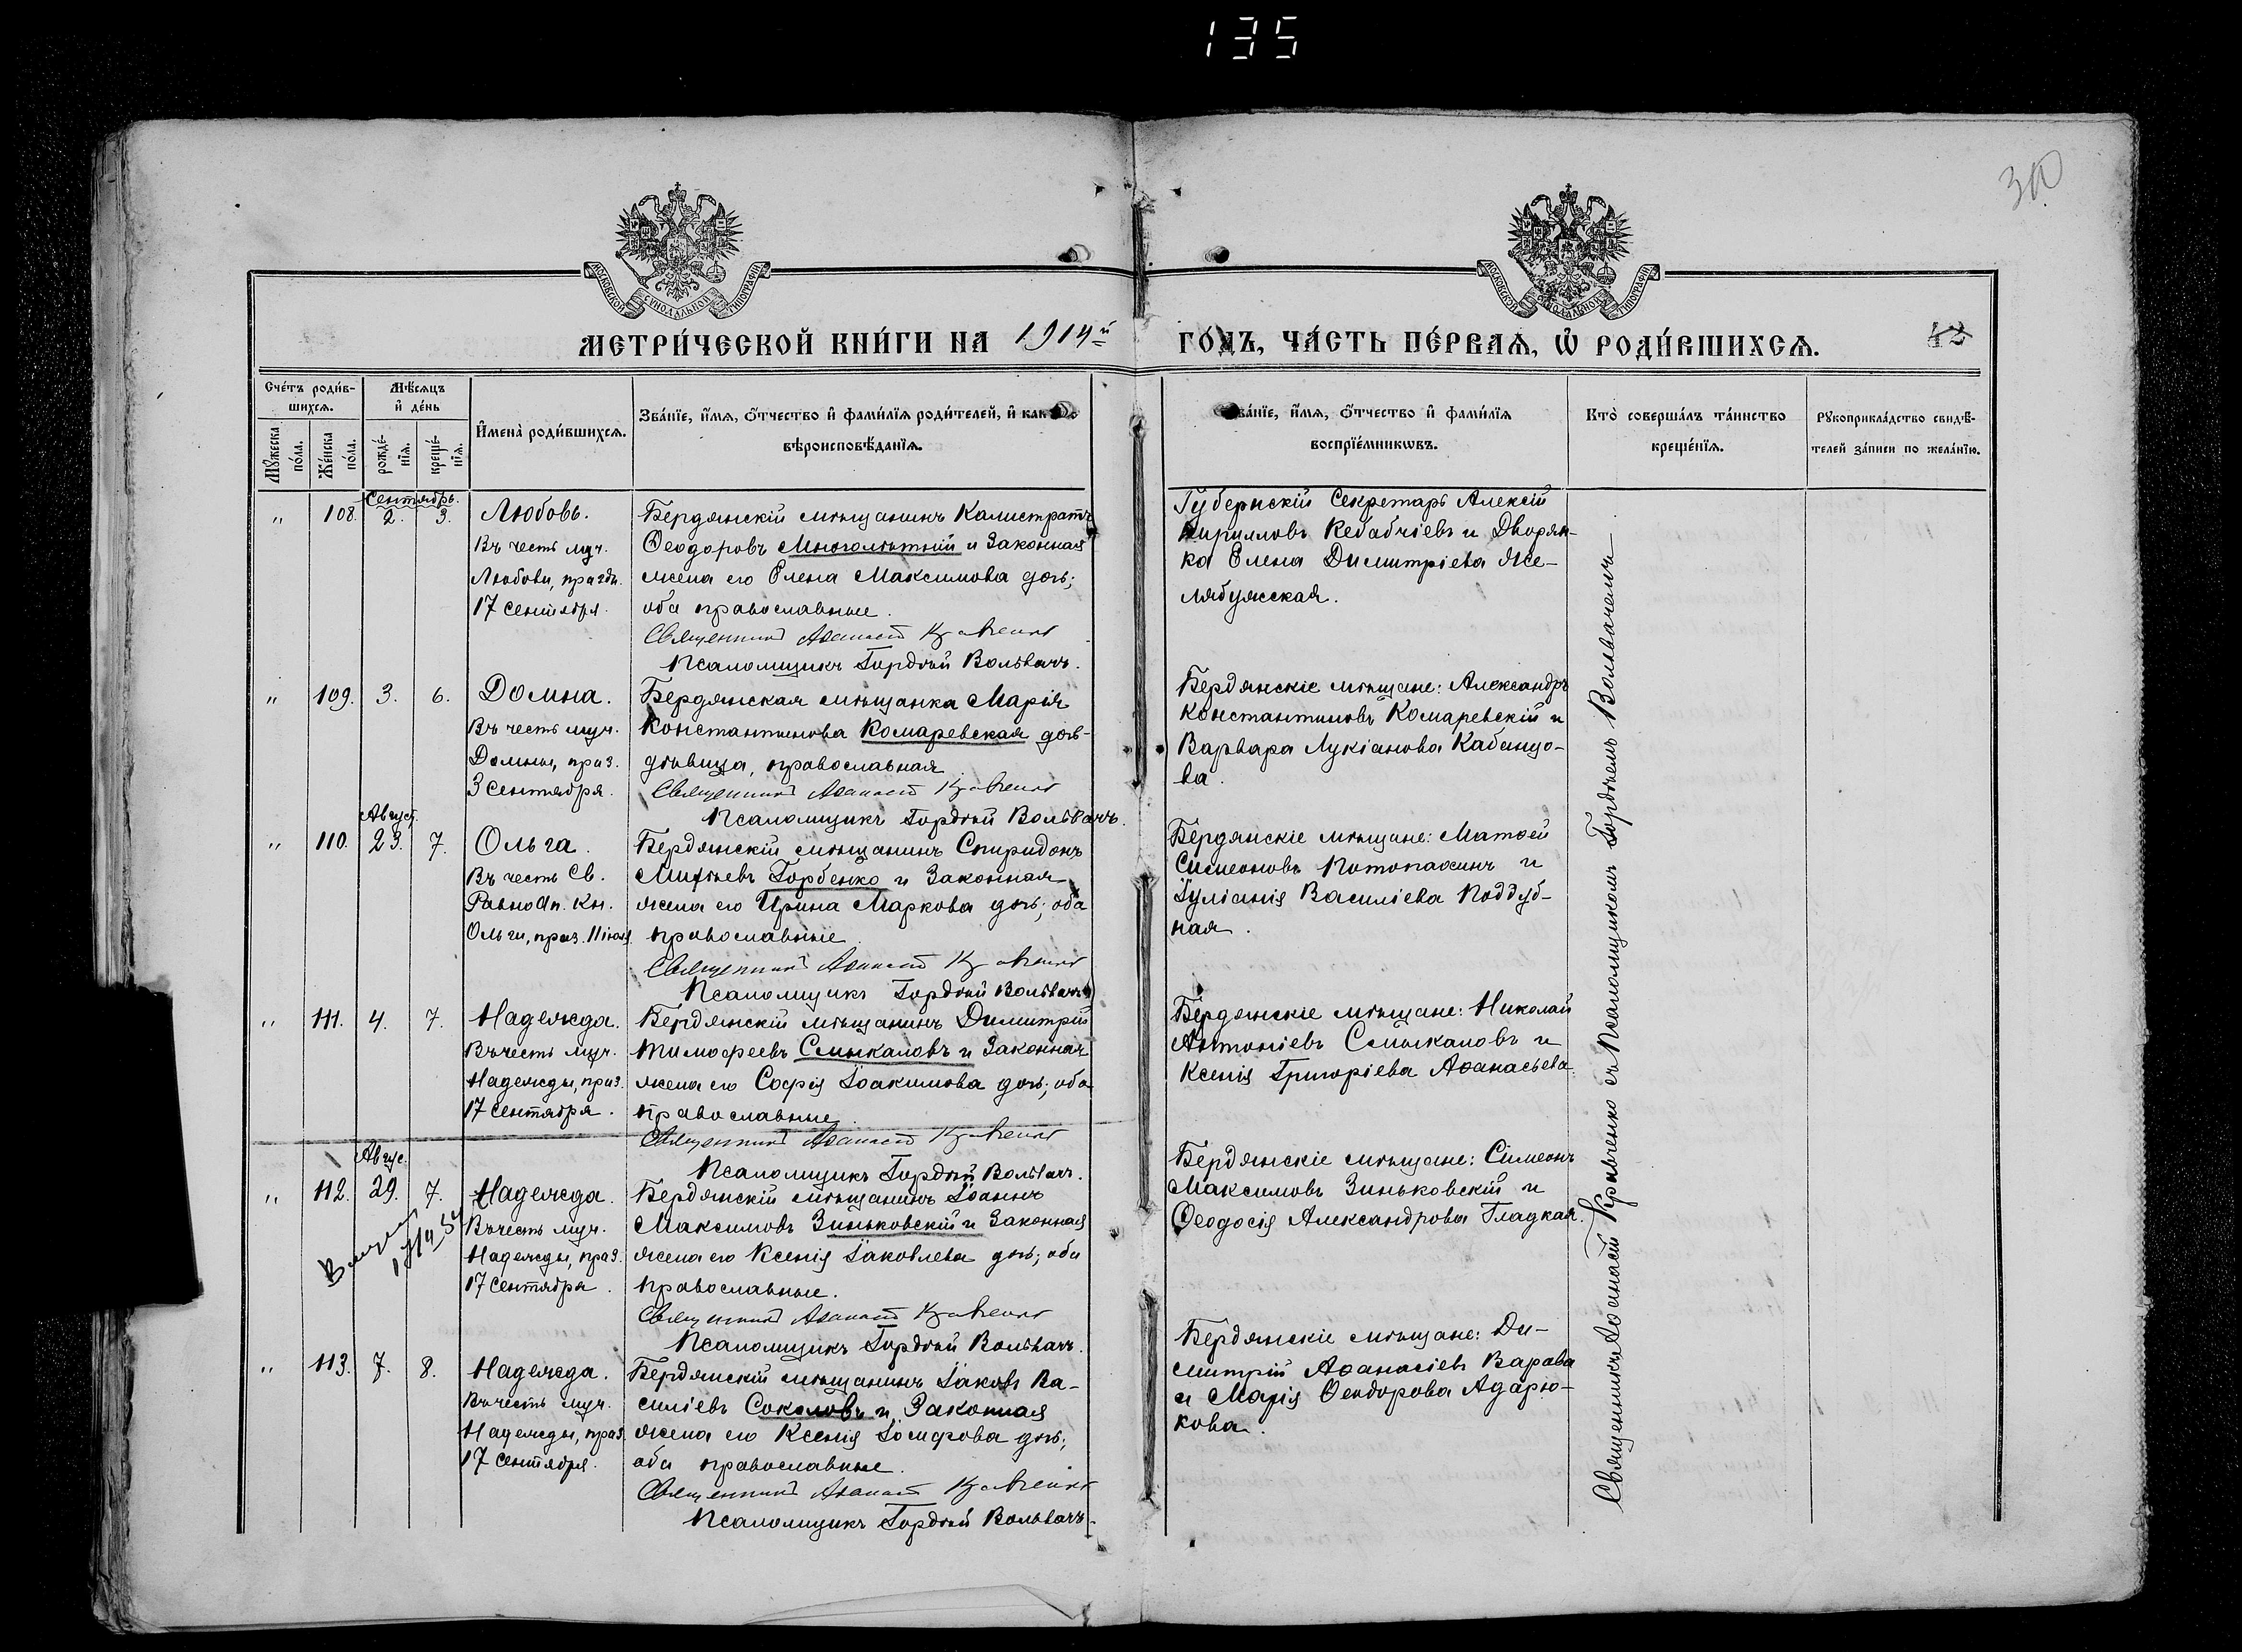 135
30
МОСКОВСКОЙ СѴНОДАЛЬНОЙ ТИПОГРАФІИ
МОСКОВСКОЙ СѴНОДАЛЬНОЙ ТИПОГРАФІИ
МЕТРИ́ЧЕСКОЙ КНИ́ГИ НА 1914й ГО́ДЪ, ЧА́СТЬ ПЕ́РВАѦ, Ѡ҆ РОДИ́ВШИХСѦ.
Сче́тъ роди́в-
шихсѧ.
Мꙋ́жеска по́ла.
Же́нска по́ла.
Мѣ́сѧцъ
и҆ де́нь
рожде́-
нїѧ.
креще́-
нїѧ.
И҆мена̀ роди́вшихсѧ.
Зва́нїе, и҆́мѧ, ѻ҆́тчество и҆ фами́лїѧ роди́телей, и҆ како́гѡ
вѣроисповѣ́данїѧ.
Зва́нїе, и҆́мѧ, ѻ҆́тчество и҆ фами́лїѧ
воспрїе́мникѡвъ.
Кто̀ соверша́лъ та́инство
креще́нїѧ.
Рꙋкоприкла́дство свидѣ́-
телей за́писи по жела́нїю.
Сентябрь.
" 108. 2. 3. Любовь.
Въ честь муч.
Любови, праздн.
17 сентября.
Бердянскій мѣщанинъ Калистратъ
Ѳеодоровъ Многолѣтній и законная
жена его Елена Максимова дочь;
оба православные.
Священникъ Аѳанасій Кравченко
Псаломщикъ Гордѣй Вольвачъ.
Губернскій Секретарь Алексій
Кирилловъ Кебабчіевъ и Дворян-
ка Елена Димитріева Же-
лябужская.
" 109. 3. 6. Домна.
Въ честь муч.
Домны, праз.
3 сентября.
Бердянская мѣщанка Марія
Константинова Комаревская дочь-
дѣвица, православная
Священникъ Аѳанасій Кравченко
Псаломщикъ Гордѣй Вольвачъ.
Бердянскіе мѣщане: Александръ
Константиновъ Комаревскій и
Варвара Лукіанова Кабанцо-
ва.
Август.
" 110. 23. 7. Ольга.
Въ честь Св.
Равноап. Кн.
Ольги, праз. 11 іюля
Бердянскій мѣщанинъ Спиридонъ
Михѣевъ Горбенко и законная
жена его Ирина Маркова дочь; оба
православные
Священникъ Аѳанасій Кравченко
Псаломщикъ Гордѣй Вольвачъ
Бердянскіе мѣщане: Матѳей
Симеоновъ Потопахинъ и
Іуліанія Василіева Поддуб-
ная.
" 111. 4. 7. Надежда.
Въ честь муч.
Надежды, праз.
17 сентября.
Бердянскій мѣщанинъ Димитрій
Тимоѳеевъ Смыкаловъ и законная
жена его Софія Іоакимова дочь; оба
православные
Священникъ Аѳанасій Кравченко
Псаломщикъ Гордѣй Вольвачъ.
Бердянскіе мѣщане: Николай
Антоніевъ Смыкаловъ и
Ксенія Григоріева Аѳанасьева.
Авгус.
" 112. 29. 7. Надежда.
Въ честь муч.
Надежды, праз.
17 сентября.
Бердянскій мѣщанинъ Іоаннъ
Максимовъ Зиньковскій и законная
жена его Ксенія Іаковлева дочь; оба
православные.
Священникъ Аѳанасій Кравченко
Псаломщикъ Гордѣй Вольвачъ.
Бердянскіе мѣщане: Симеонъ
Максимовъ Зиньковскій и
Ѳеодосія Александрова Гладкая.
" 113. 7. 8. Надежда.
Въ честь муч.
Надежды, праз.
17 сентября.
Бердянскій мѣщанинъ Іаковъ Ва-
силіевъ Соколовъ и законная
жена его Ксенія Іосифова дочь;
оба православные.
Священникъ Аѳанасій Кравченко
Псаломщикъ Гордѣй Вольвачъ.
Бердянскіе мѣщане: Ди-
митрій Аѳанасіевъ Варава
и Марія Ѳеодорова Адарю-
кова.
Священникъ Аѳанасій Кравченко съ Псаломщикомъ Гордѣемъ Вольвачемъ